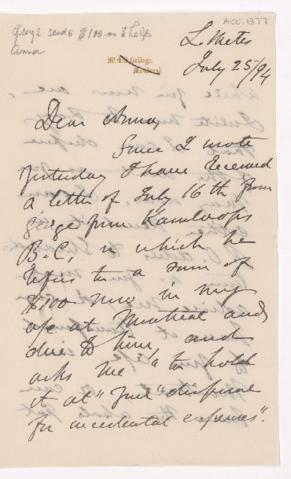 George sends $100 to help
Anna
ACC. 1377
McGill College,
Montreal.
L. Metis
July 25/94
Dear Anna,
Since I wrote
yesterday I have received
a letter of July 16th from
George from Kamloops
B.C., in which he
refers to a sum of
$100 now in my
at Montreal and
due to him, and
asks me "to hold
it at" "disposal
for incidental expenses".